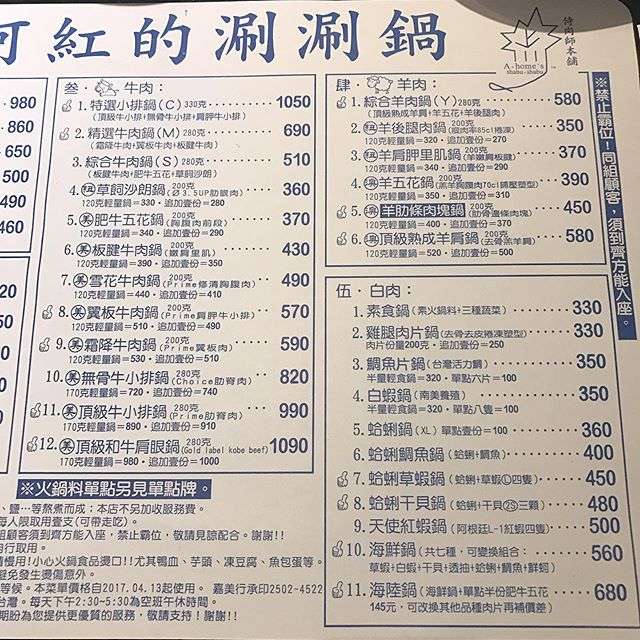 阿紅的涮涮鍋
A-home's
shabu-shabu
侍肉師本舖
980
860
650
500
490
460
叁. 牛肉：
1. 特選小排鍋(C) 330克 1050
(頂級牛小排+無骨牛小排+肩胛牛小排)
2. 精選牛肉鍋(M) 280克 690
(霜降牛肉+翼板牛肉+板腱牛肉)
3. 綜合牛肉鍋(S) 280克 510
(板腱牛肉+肥牛五花+草飼沙朗)
4. 草飼沙朗鍋 200克 (Ø3.5UP肋眼肉) 360
120克輕量鍋=330・追加壹份=280
5. 肥牛五花鍋 200克 (胸腹肉前段) 370
120克輕量鍋=340・追加壹份=290
6. 板腱牛肉鍋 200克 (嫩肩里肌) 430
120克輕量鍋=390・追加壹份=350
7. 雪花牛肉鍋 200克 (Prime修清胸腹肉) 490
120克輕量鍋=440・追加壹份=410
8. 翼板牛肉鍋 200克 (Prime肩胛牛小排) 570
120克輕量鍋=510・追加壹份=490
9. 霜降牛肉鍋 200克 (Prime翼板肉) 590
120克輕量鍋=530・追加壹份=510
10. 無骨牛小排鍋 280克 (Choice肋脊肉) 820
170克輕量鍋=720・追加壹份=740
11. 頂級牛小排鍋 280克 (Prime肋脊肉) 990
170克輕量鍋=890・追加壹份=910
12. 頂級和牛肩眼鍋 280克 (Gold label kobe beef) 1090
170克輕量鍋=980・追加壹份=1000
※火鍋料單點另見單點牌。
、鹽…等熬煮而成；本店不另加收服務費。
每人限取用壹支(可帶走吃)。
組顧客須到齊方能入座，禁止霸位，敬請見諒配合。謝謝!!
自行取用。
請慢用!小心火鍋食品燙口!!尤其鴨血、芋頭、凍豆腐、魚包蛋等。
避免發生燙傷意外。
等候。本菜單價格自2017.04.13起使用。 嘉美行承印2502-4522
台灣。每天下午2:30~5:30為空班午休時間。
期盼為您提供更優質的服務，敬請支持！謝謝!!
肆. 羊肉：
1. 綜合羊肉鍋(Y) 280克 580
(頂級熟成羊肩+羊五花+羊後腿肉)
2. 羊後腿肉鍋 200克 (瘦肉率85cl捲凍) 350
120克輕量鍋=320・追加壹份=270
3. 羊肩胛里肌鍋 200克 (羊嫩肩板腱) 370
120克輕量鍋=340・追加壹份=290
4. 羊五花鍋 200克 (羔羊胸腹肉70cl鋪壓塑型) 390
120克輕量鍋=350・追加壹份=310
5. 羊肋條肉塊鍋 200克 (肋骨邊條肉塊) 450
120克輕量鍋=400・追加壹份=370
6. 頂級熟成羊肩鍋 200克 (去骨羔羊肩) 580
120克輕量鍋=520・追加壹份=500
※禁止霸位！同組顧客，須到齊方能入座。
伍. 白肉：
1. 素食鍋 (素火鍋料+三種蔬菜) 330
2. 雞腿肉片鍋 (去骨去皮捲凍塑型) 330
肉片份量200克・追加壹份=250
3. 鯛魚片鍋 (台灣活力鯛) 350
半量輕食鍋=320・單點六片=100
4. 白蝦鍋 (南美養殖) 350
半量輕食鍋=320・單點八隻=100
5. 蛤蜊鍋 (XL) 單點壹份=100 360
6. 蛤蜊鯛魚鍋 (蛤蜊+鯛魚) 400
7. 蛤蜊草蝦鍋 (蛤蜊+草蝦Ⓛ四隻) 450
8. 蛤蜊干貝鍋 (蛤蜊+干貝2S三顆) 480
9. 天使紅蝦鍋 (阿根廷L-1紅蝦四隻) 500
10. 海鮮鍋 (共七種，可變換組合： 560
草蝦+白蝦+干貝+透抽+蛤蜊+鯛魚+鮮蚵)
11. 海陸鍋 (海鮮鍋+單點半份肥牛五花 680
145元，可改換其他品種肉片再補價差)